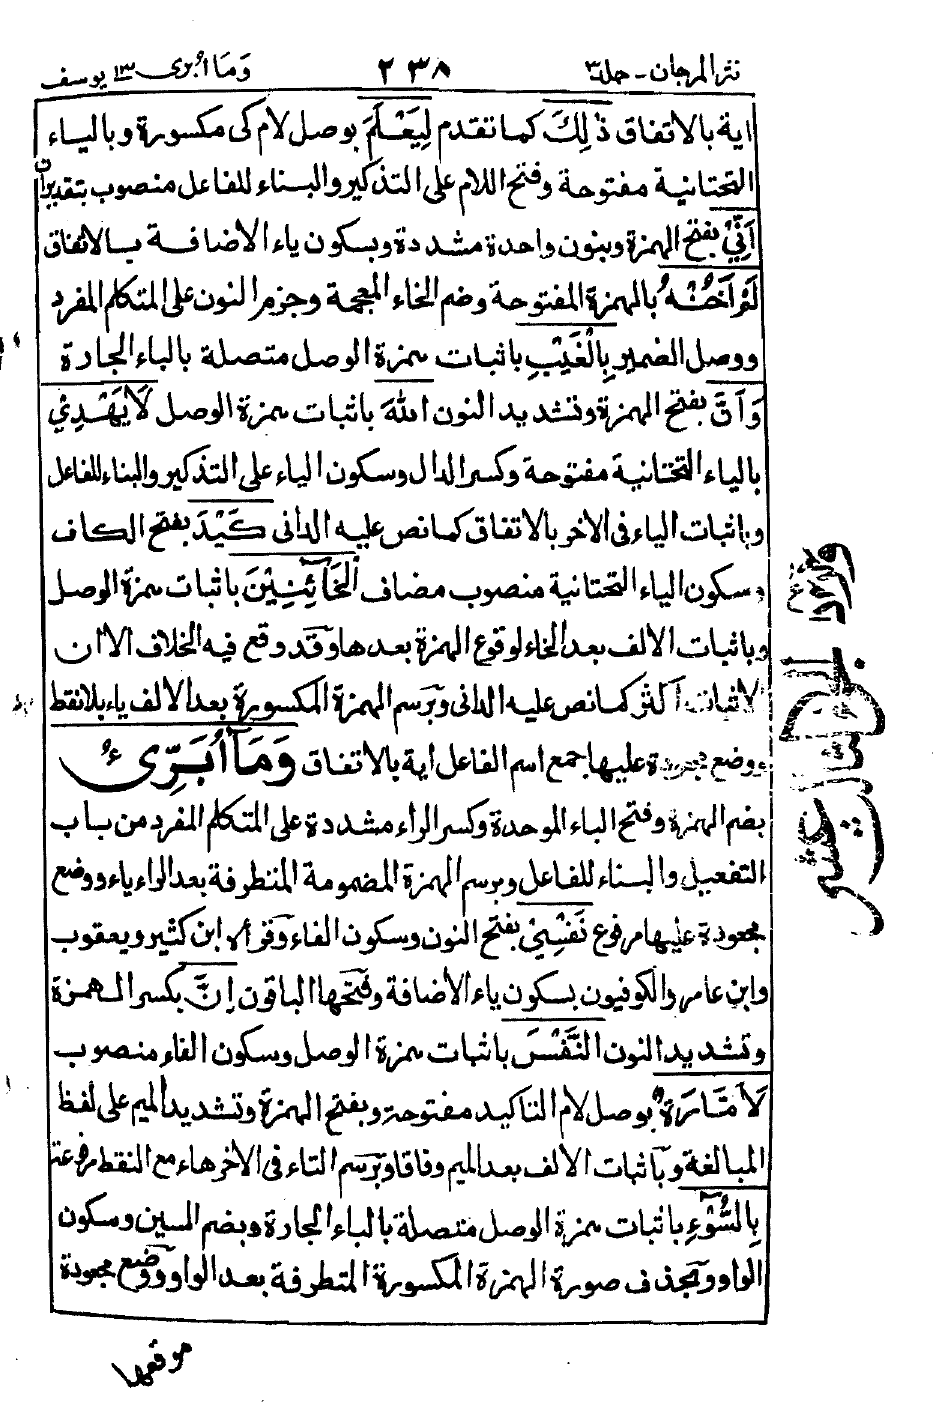 نثر المرجان - جلد ٣ ٢٣٨ وما أبرى ١٣ يوسف
اية بالاتفاق ذٰلِكَ كما تقدم لِيَعْلَمَ بوصل لام كى مكسورة وبالياء
التحتانية مفتوحة وفتح اللام على التذكير والبناء للفاعل منصوب بتقدير ان
اَنِّىْ بفتح الهمزة وبنون واحدة مشددة وبسكون ياء الاضافة بالاتفاق
لَمْ اَخُنْهُ بالهمزة المفتوحة وضم الخاء المعجمة وجزم النون على المتكلم المفرد
ووصل الضمير بِالْغَيْبِ باثبات همزة الوصل متصلة بالباء الجارة
وَاَنَّ بفتح الهمزة وتشديد النون اللّٰهَ باثبات همزة الوصل لَا يَهْدِىْ
بالياء التحتانية مفتوحة وكسر الدال وسكون الياء على التذكير والبناء للفاعل
وباثبات الياء فى الاخر بالاتفاق كما نص عليه الدانى كَيْدَ بفتح الكاف
وسكون الياء التحتانية منصوب مضاف الْخَآئِنِيْنَ باثبات همزة الوصل
وباثبات الالف بعد الخاء لوقوع الهمزة بعدها وقد وقع فيه الخلاف الا ان
الاثبات اكثر كما نص عليه الدانى وبرسم الهمزة المكسورة بعد الالف ياء بلا نقط
ووضع مجعودة عليها جمع اسم الفاعل اية بالاتفاق وَمَآ اُبَرِّئُ
بضم الهمزة وفتح الباء الموحدة وكسر الراء مشددة على المتكلم المفرد من باب
التفعيل والبناء للفاعل وبرسم الهمزة المضمومة المتطرفة بعد الراء ياء ووضع
مجعودة عليها مرفوع نَفْسِىْ بفتح النون وسكون الفاء وقرأ ابن كثير ويعقوب
وابن عامر والكوفيون بسكون ياء الاضافة وفتحها الباقون اِنَّ بكسر الهمزة
وتشديد النون النَّفْسَ باثبات همزة الوصل وسكون الفاء منصوب
لَاَمَّارَةٌ بوصل لام التاكيد مفتوحة وبفتح الهمزة وتشديد الميم على لفظ
المبالغة وباثبات الالف بعد الميم وفاقا وبرسم التاء فى الاخر هاء مع النقط مرفوعة
بِالسُّوْٓءِ باثبات همزة الوصل متصلة بالباء الجارة وبضم السين وسكون
الواو وبحذف صورة الهمزة المكسورة المتطرفة بعد الواو ووضع مجعودة
موقعها
الجزء الثالث عشر